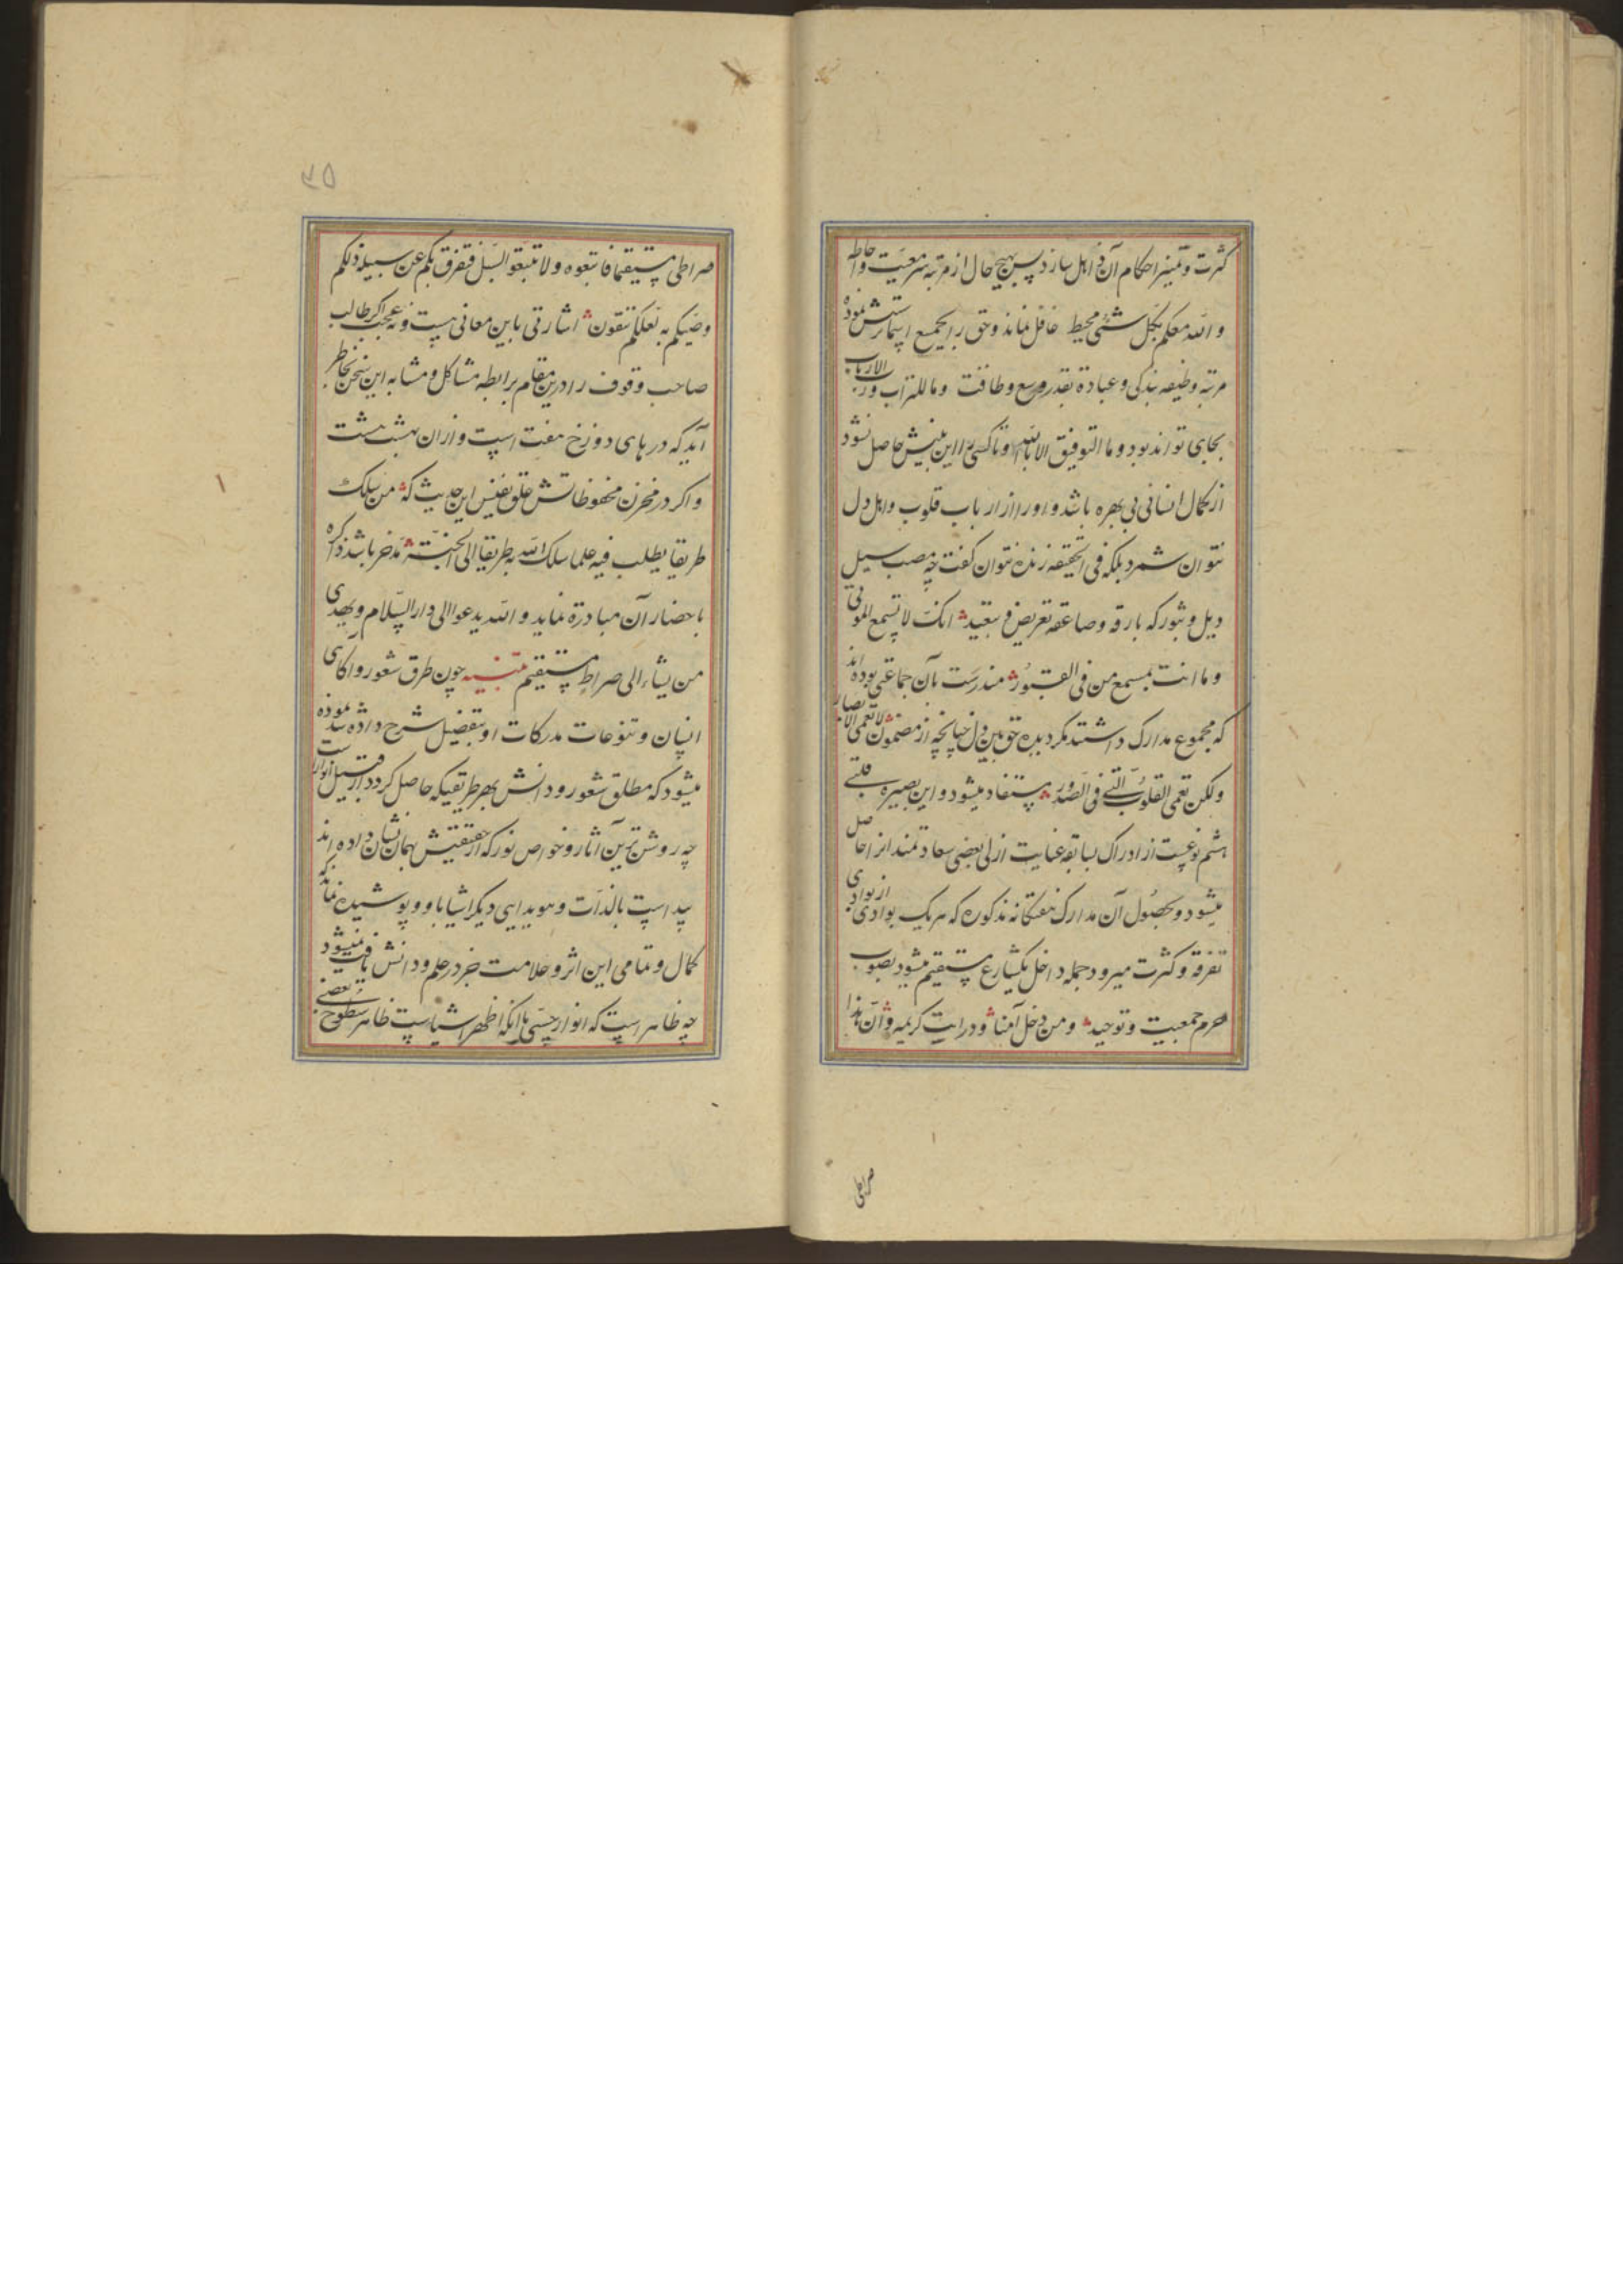 کثرت و تمیز احکام آن ذاهل سازد پس بهیچ حال از مرتبه سرمعیت و احاطه
و الله معکم بکل شئی محیط غافل نماند و حق را بجمیع اسما پرستش نموده
مرتبه وظیفه بندکی و عبادة بقدر وسع و طاقت و ما للتراب و رب الارباب
بجای تواند بود و ما التوفیق الا بالله و تا کسی را این بینش حاصل نشود
از کمال انسانی بی بهره باشد و او را از ارباب قلوب و اهل دل
نتوان شمرد بلکه فی الحقیقه زنده نتوان کفت چه مصب سیل
ویل و ثبور که بارقه و صاعقه تعریض انک لا تسمع الموتی
و ما انت بمسمع من فی القبور مندرست بآن جماعتی بوده اند
که مجموع مدارک داشتند مکر دیده حق بین دل چنانچه از مضمون لا تعمی الابصار
ولکن تعمی القلوب التی فی الصدور مستفاد میشود و این بصیره قلبی
هشتم نوعیست از ادراک بسابقه عنایت ازلی بعضی سعادتمندانرا حاصل
میشود و بحصول آن مدارک هفتکانه مذکوره که هریک بوادی از بوادی
تفرقه و کثرت میرود جمله داخل یکشارع مستقیم میشود بصوب
حرم جمعیت و توحید و من دخل آمنا و در ایت کریمه و ان هذا
صراطی
۳۵
صراطی مستقیما فاتبعوه و لا تتبعو السبل فتفرق بکم عن سبیله ذلکم
وصیکم به لعلکم تتقون اشارتی باین معانی هست و نه عجب اکر طالب
صاحب وقوف را درین مقام برابطه مشاکل و مشابه این سخن بخاطر
آید که درهای دوزخ هفت است و ازان بهشت هشت
و اکر در مخزن محفوظاتش علق نفیس این حدیث که من سلک
طریقا یطلب فیه علما سلک الله به طریقا الی الجنة مدخر باشد ذاکره
باحضار آن مبادرة نماید و الله یدعوا الی دار السلام و یهدی
من یشاء الی صراط مستقیم تنبیه چون طرق شعور و اکاهی
انسان و تنوعات مدرکات او بتفضیل شرح داده شد نموده
میشود که مطلق شعور و دانش بهر طریقیکه حاصل کردد از قبیل انوارست
چه روشن ترین آثار و خواص نور که از حقیقتش بهمان نشان داده اند
پیداست بالذات و هویدایی دیکر اشیا باو و پوشیده نماند که
کمال و تمامی این اثر و علامت جز در علم و دانش یافت نمیشود
چه ظاهر است که انوار حسی با انکه اظهر اشیاست ظاهر سطوح بعضی